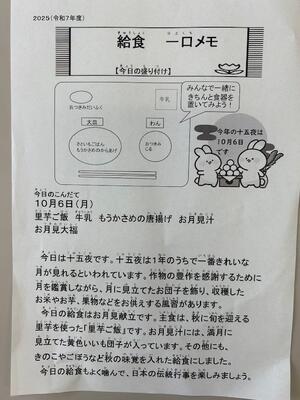 2025(令和7年度)
給食　一口メモ
【今日の盛り付け】
おつきみだいふく
牛乳
みんなで一緒に
きちんと食器を
置いてみよう！
大皿
わん
さといもごはん
もうかさめのからあげ
おつきみ
じる
今年の十五夜は
10月6日
です
今日のこんだて
10月6日(月)
里芋ご飯　牛乳　もうかさめの唐揚げ　お月見汁
お月見大福
今日は十五夜です。十五夜は1年のうちで一番きれいな
月が見れるといわれています。作物の豊作を感謝するために
月を鑑賞しながら、月に見立てたお団子を飾り、収穫した
お米やお芋、果物などをお供えする風習があります。
今日の給食はお月見献立です。主食は、秋に旬を迎える
里芋を使った「里芋ご飯」です。お月見汁には、満月に
見立てた黄色いいも団子が入っています。その他にも、
きのこやごぼうなど秋の味覚を入れた給食にしました。
今日の給食もよく噛んで、日本の伝統行事を楽しみましょう。